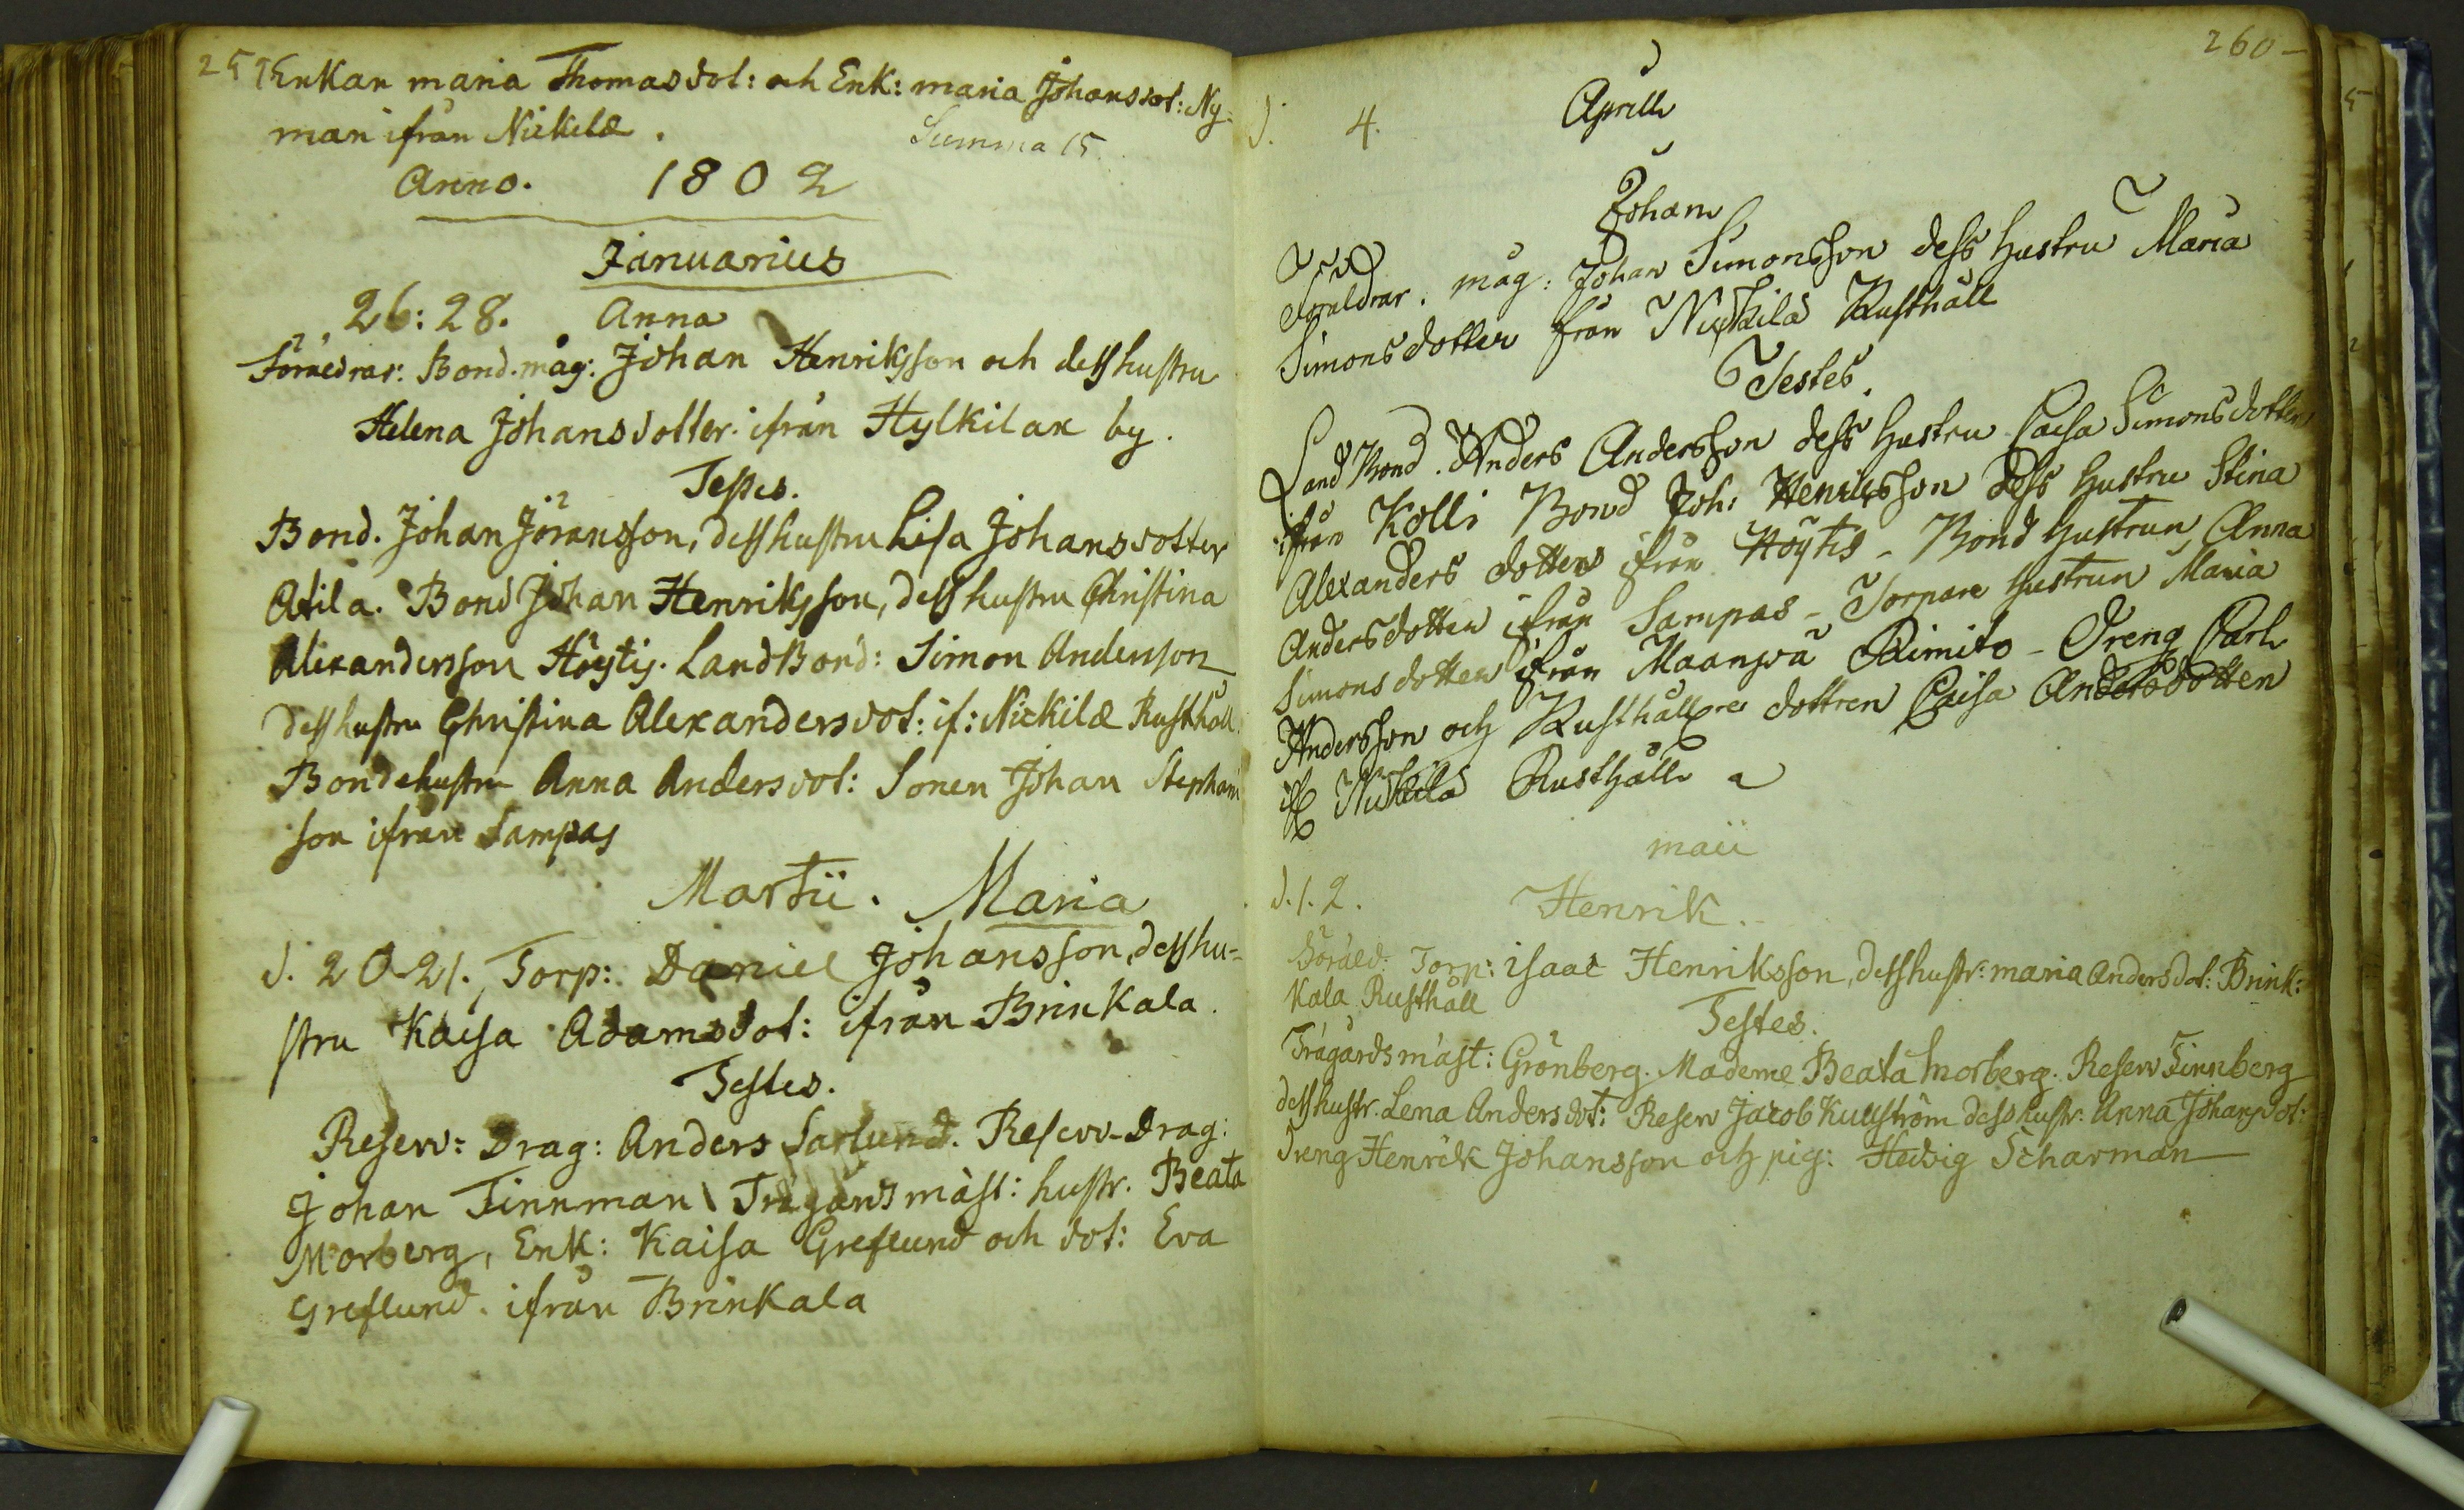 259
Enkan maria Thomasdot: och Enk: maria Johansdot: Ny-
man ifrån Nickilæ.
Summa 15.
Anno. 1802
Januarius
26: 28. Anna
Bond.måg: Johan Henriksson och dess hustru
Helena Johansdotter ifrån Hylkilax by.
Testes.
Bond. Johan Jöransson, dess hustru Lisa Johansdotter
Atila. Bond Johan Henriksson, dess hustru Christina
Alexandersson Höytis. LandBond: Simon Andersson
dess hustru Christina Alexandersdot: if: Nickilæ Rusthåll.
Bondehustru Anna Andersdot: Sonen Johan Stephan
son ifrån Sampas
Martii. Maria
d. 20-21. Torp: Daniel Johansson, dess hu-
stru Kaisa Adamsdot: ifrån Brinkala.
Testes.
Reserv: Drag: Anders Sarlund. Reserv-Drag:
Johan Finnman Trägårdsmäst: hustr. Beata
Morberg, Enk: Kaisa Greflund och dot: Eva
Greflund. ifrån Brinkala
260-
d. 4. Aprill
Johan
Föräldrar. måg: Johan Simonsson dess hustru Maria
Simonsdotter från Nickila Rusthåll
Testes.
Land Bond. Anders Andersson dess hustru Caisa Simonsdotter
ifrån Kolli Bond Joh: Henricsson dess hustru Stina
Alexanders dotter ifrån Höytis - Bond hustrun Anna
Andersdotter ifrån Sampas - Torpare hustrun Maria
Simonsdotter ifrån Maanpä Rimito - Dreng Carl
Andersson och Rusthållare dottren Caisa Andersdotter
if Nickila Rusthåll
maii
d. 1. 2. Henrik.
Föräld: Torp: isaac Henriksson, dess hustr: maria Andersdot: Brink:
kala Rusthåll
Testes.
Trägårdsmäst: Grönberg. Mademe Beata morberg. Reserv Finnberg
dess hustr. Lena Andersdot: Reserv Jacob Kullström dess hustr. Anna Johansdot:
Dreng Henrik Johansson och pig: Hedvig Scharman